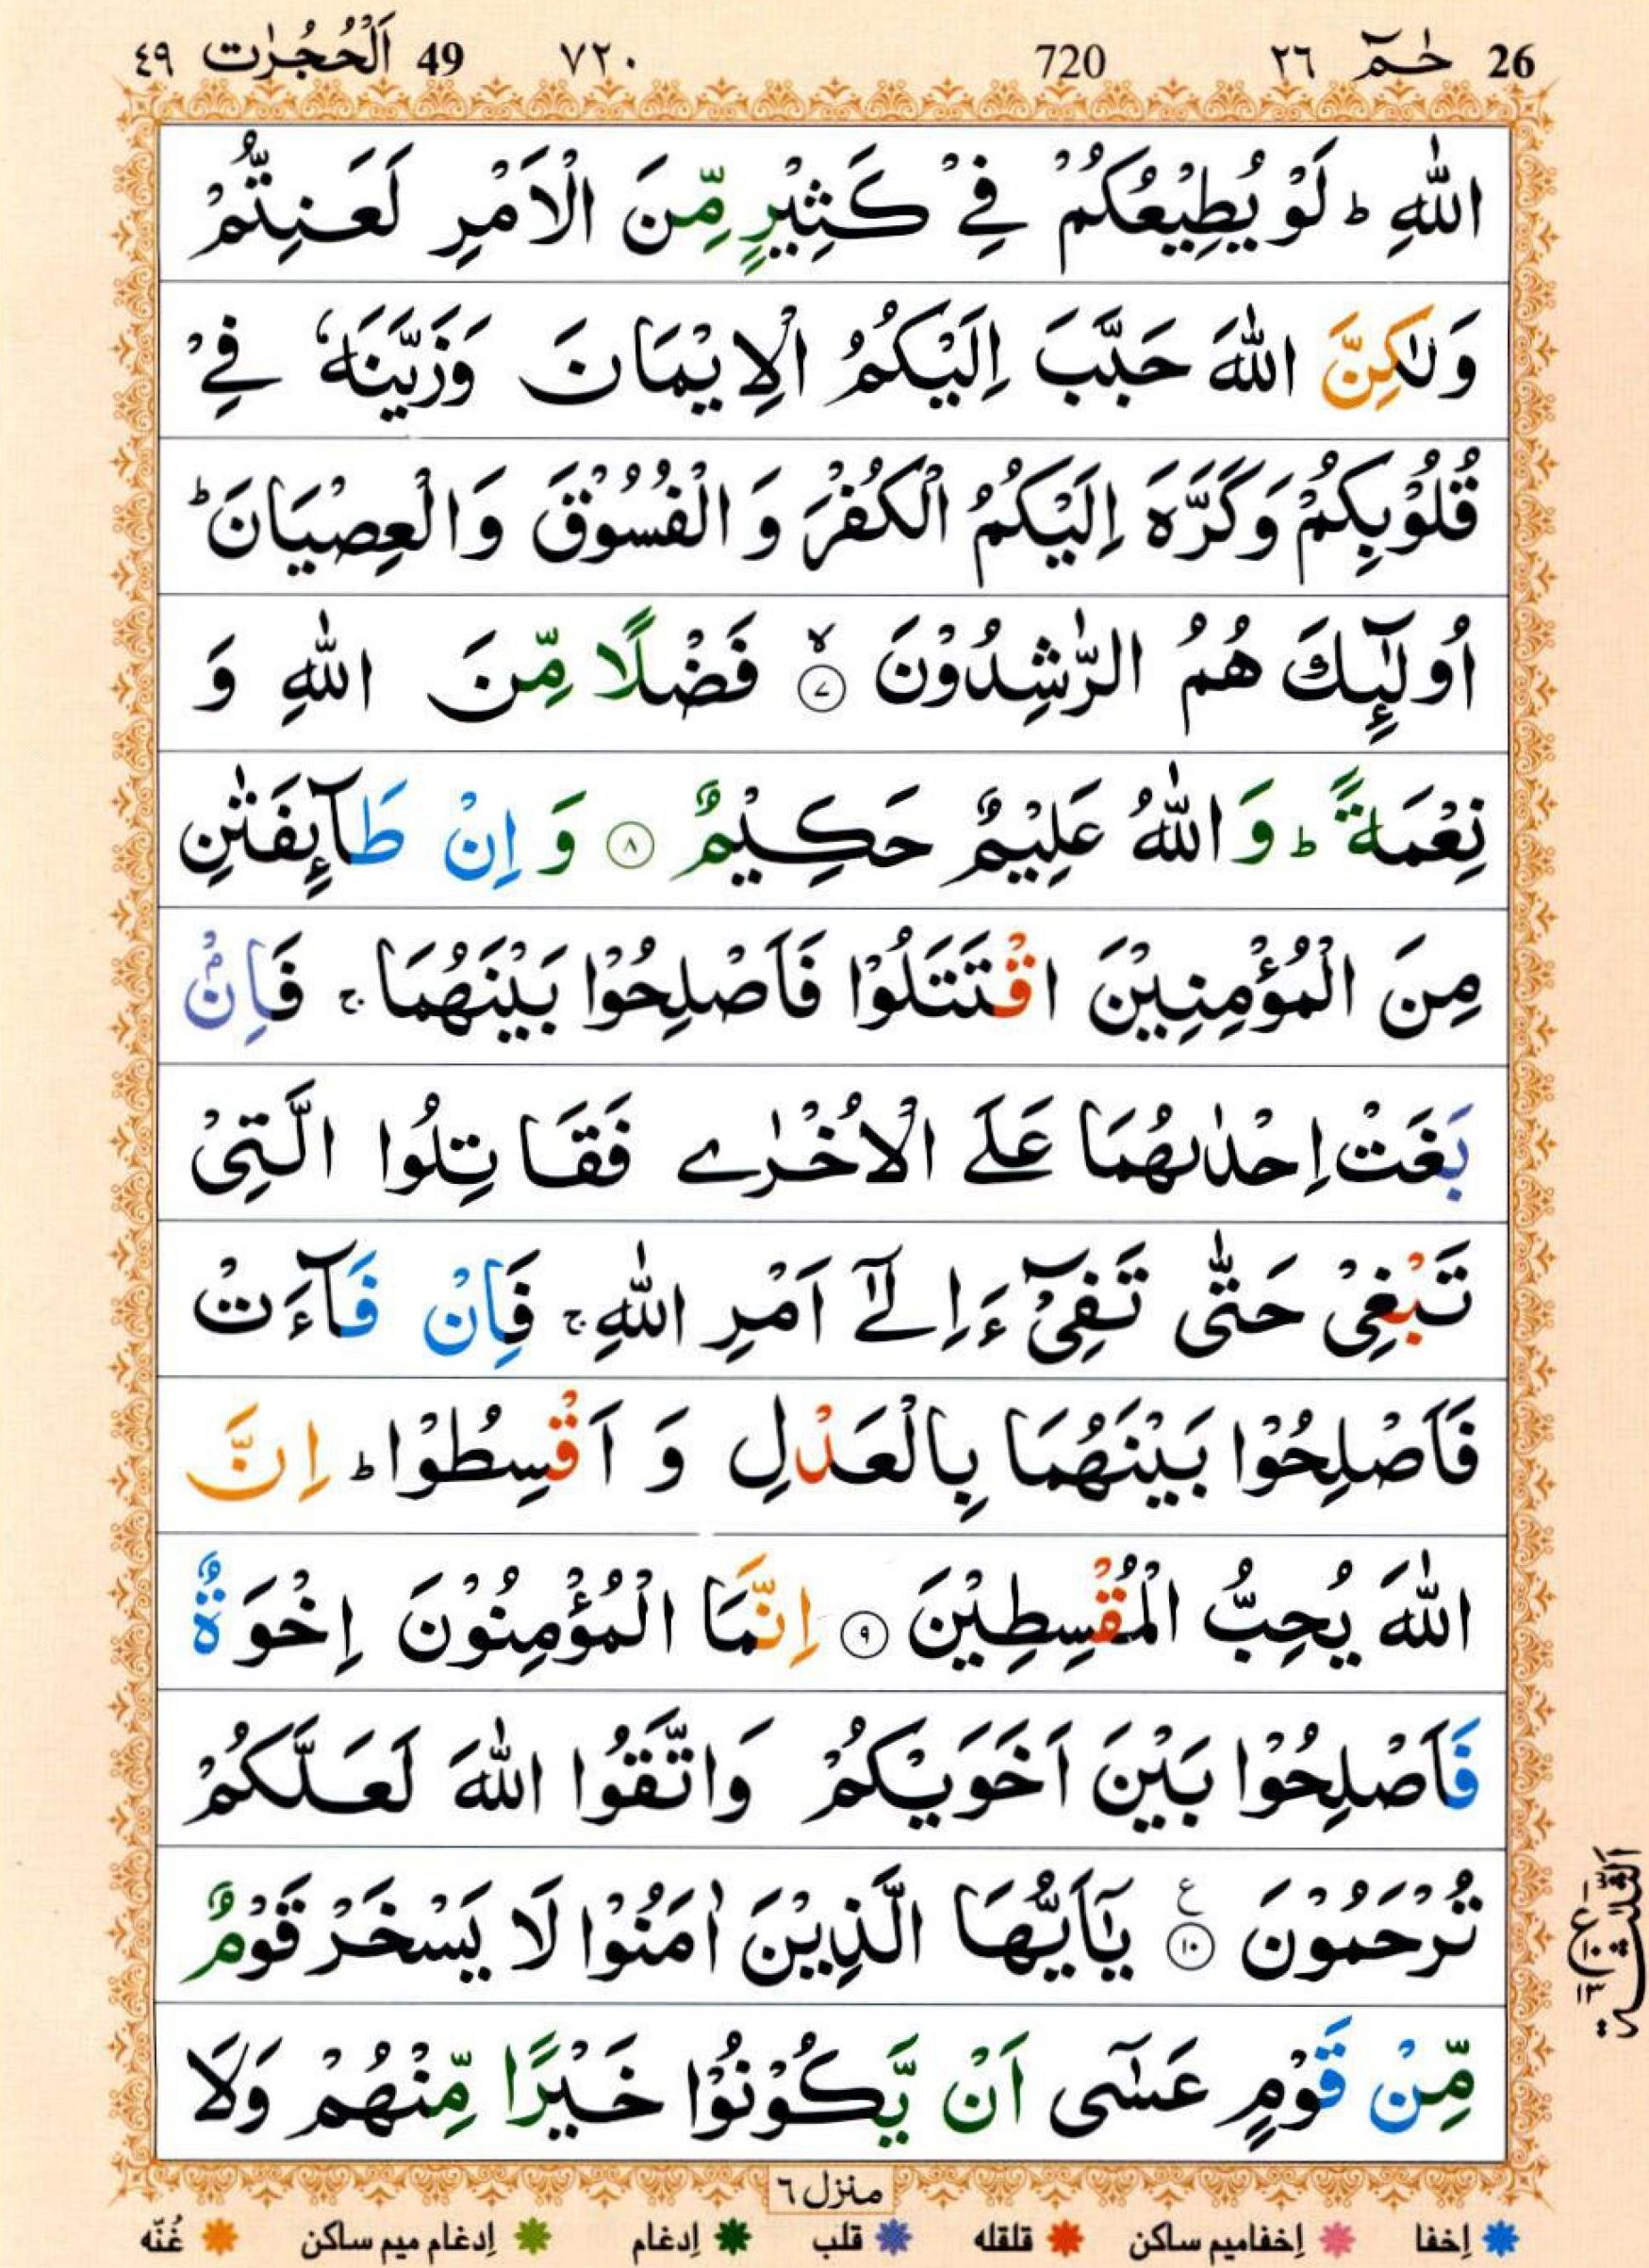 26 حٰمٓ ٢٦ 720 ٧٢٠ 49 اَلْحُجُرٰت ٤٩
اللّٰهِ ؕ لَوْ يُطِيْعُكُمْ فِيْ كَثِيْرٍ مِّنَ الْاَمْرِ لَعَنِتُّمْ
وَلٰكِنَّ اللّٰهَ حَبَّبَ اِلَيْكُمُ الْاِيْمَانَ وَزَيَّنَهٗ فِيْ
قُلُوْبِكُمْ وَكَرَّهَ اِلَيْكُمُ الْكُفْرَ وَ الْفُسُوْقَ وَالْعِصْيَانَ ؕ
اُولٰٓئِكَ هُمُ الرّٰشِدُوْنَ ۙ ٧ فَضْلًا مِّنَ اللّٰهِ وَ
نِعْمَةً ؕ وَ اللّٰهُ عَلِيْمٌ حَكِيْمٌ ٨ وَ اِنْ طَآئِفَتٰنِ
مِنَ الْمُؤْمِنِيْنَ اقْتَتَلُوْا فَاَصْلِحُوْا بَيْنَهُمَا ۚ فَاِنْۢ
بَغَتْ اِحْدٰىهُمَا عَلَى الْاُخْرٰى فَقَاتِلُوا الَّتِيْ
تَبْغِيْ حَتّٰى تَفِيْٓءَ اِلٰٓى اَمْرِ اللّٰهِ ۚ فَاِنْ فَآءَتْ
فَاَصْلِحُوْا بَيْنَهُمَا بِالْعَدْلِ وَ اَقْسِطُوْا ؕ اِنَّ
اللّٰهَ يُحِبُّ الْمُقْسِطِيْنَ ٩ اِنَّمَا الْمُؤْمِنُوْنَ اِخْوَةٌ
فَاَصْلِحُوْا بَيْنَ اَخَوَيْكُمْ وَاتَّقُوا اللّٰهَ لَعَلَّكُمْ
تُرْحَمُوْنَ ١٠ ع يٰۤاَيُّهَا الَّذِيْنَ اٰمَنُوْا لَا يَسْخَرْ قَوْمٌ
مِّنْ قَوْمٍ عَسٰۤى اَنْ يَّكُوْنُوْا خَيْرًا مِّنْهُمْ وَلَا
اَلثَّلٰثَة
ع ١٠ ١٣
منزل ٦
اِخفا اِخفامیم ساکن قلقله قلب اِدغام اِدغام میم ساکن غُنّه